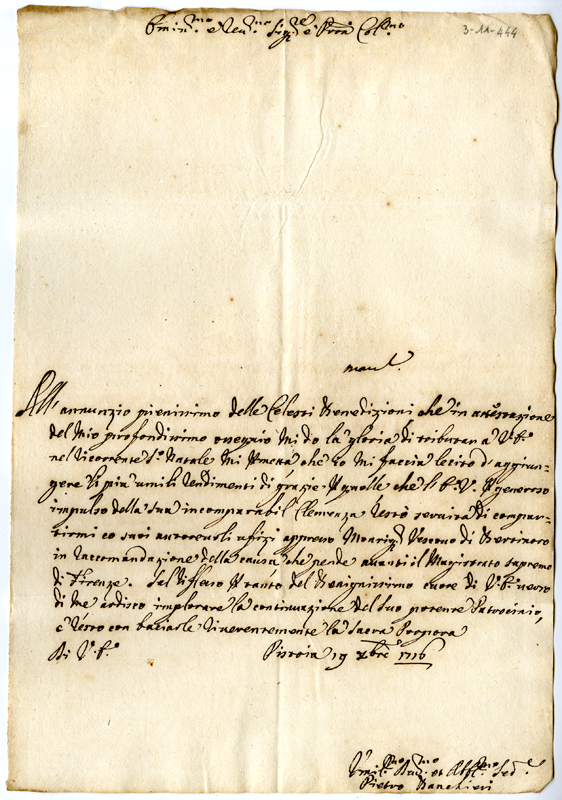 Emin.mo e Reu.mo Sig.re e Pron Col.mo
3-11-444
All'annunzio pienissimo delle Celesti Benedizioni che in attestazione
del Mio profondissimo ossequio Mi do la gloria di tributare a V. E.
nel Vicorrente S.o Natale Mi che io Mi faccia lecito d'aggiun-
gere le più umili Rendimenti di grazie quelle che l'E. V. generoso
impulso della sua incomparabil Clemenza restò servita di compar-
tirmi co suoi autoreuoli ufizi appresso Monsig.r Vescouo di Bertinoro
in raccomandazione della causa che pende auanti il Magistrato supremo
di Firenze. Sul riflesso tanto del Benignissimo cuore di V. E. uerso
di Me ardisco implorare la continuazione del suo potente Patrocinio,
e resto con baciarle riuerentemente la Sacra Porpora
Di V. E.
Pistoia 19 Xbre 1716
Vmil.mo Diu.mo et Obl.mo Ser.e
Pietro Banchieri